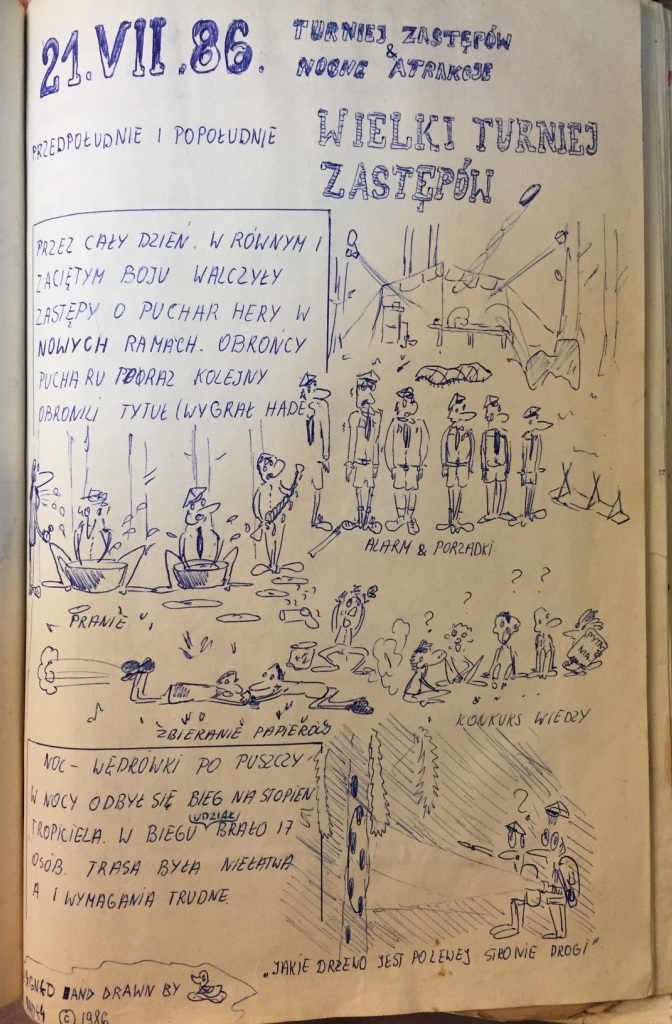 21.VII.86.
TURNIEJ ZASTĘPÓW
&
NOCNE ATRAKCJE
PRZEDPOŁUDNIE I POPOŁUDNIE
WIELKI TURNIEJ
ZASTĘPÓW
PRZEZ CAŁY DZIEŃ. W RÓWNYM I
ZACIĘTYM BOJU WALCZYŁY
ZASTĘPY O PUCHAR HERY W
NOWYCH RAMACH. OBROŃCY
PUCHARU PORAZ KOLEJNY
OBRONILI TYTUŁ (WYGRAŁ HADES
ALARM & PORZĄDKI
PRANIE
ZBIERANIE PAPIERÓW
? ? ? ?
KONKURS WIEDZY
NOC - WĘDRÓWKI PO PUSZCZY
W NOCY ODBYŁ SIĘ BIEG NA STOPIEŃ
TROPICIELA. W BIEGU UDZIAŁ BRAŁO 17
OSÓB. TRASA BYŁA NIEŁATWA
A I WYMAGANIA TRUDNE.
?
"JAKIE DRZEWO JEST PO LEWEJ STRONIE DROGI"
SIGNED AND DRAWN BY
© 1986